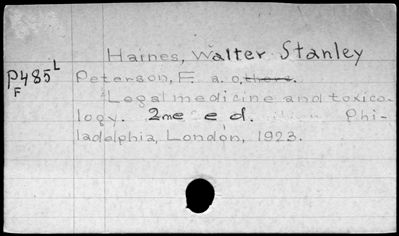 Haines, Walter Stanley
P485 L
F
Peterson, F. a. o. thers.
Legal medicine and toxico-
logy. 2me ed. Phi-
ladelphia, London, 1923.